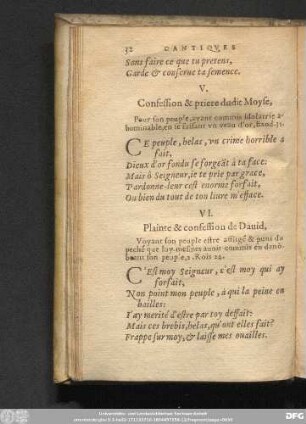 32 CANTIQUES
Sans faire ce que tu pretens,
Garde & conserue ta semence.
V.
Confession & priere dudit Moyse,
Pour son peuple, ayant commis Idolatrie a-
hominable, en se faisant vn veau d'or, Exod. 32.
CE peuple, helas, vn crime horrible a
fait,
Dieux d'or fondu se forgeãt à ta face:
Mais ô Seigneur, ie te prie par grace,
Pardonne-leur cest enorme forfait,
Ou bien du tout de ton liure m'efface.
VI.
Plainte & confession de Dauid,
Voyant son peuple estre affligé & puni du
peché que luy-mesmes auoit commis en denō-
brant son peuple, 2. Rois 24.
C'Est moy Seigneur, c'est moy qui ay
forfait,
Non point mon peuple, à qui la peine en
bailles:
I'ay merité d'estre par toy deffait:
Mais ces brebis, helas, qu'ont elles fait?
Frappe sur moy, & laisse mes ouailles.
DFG